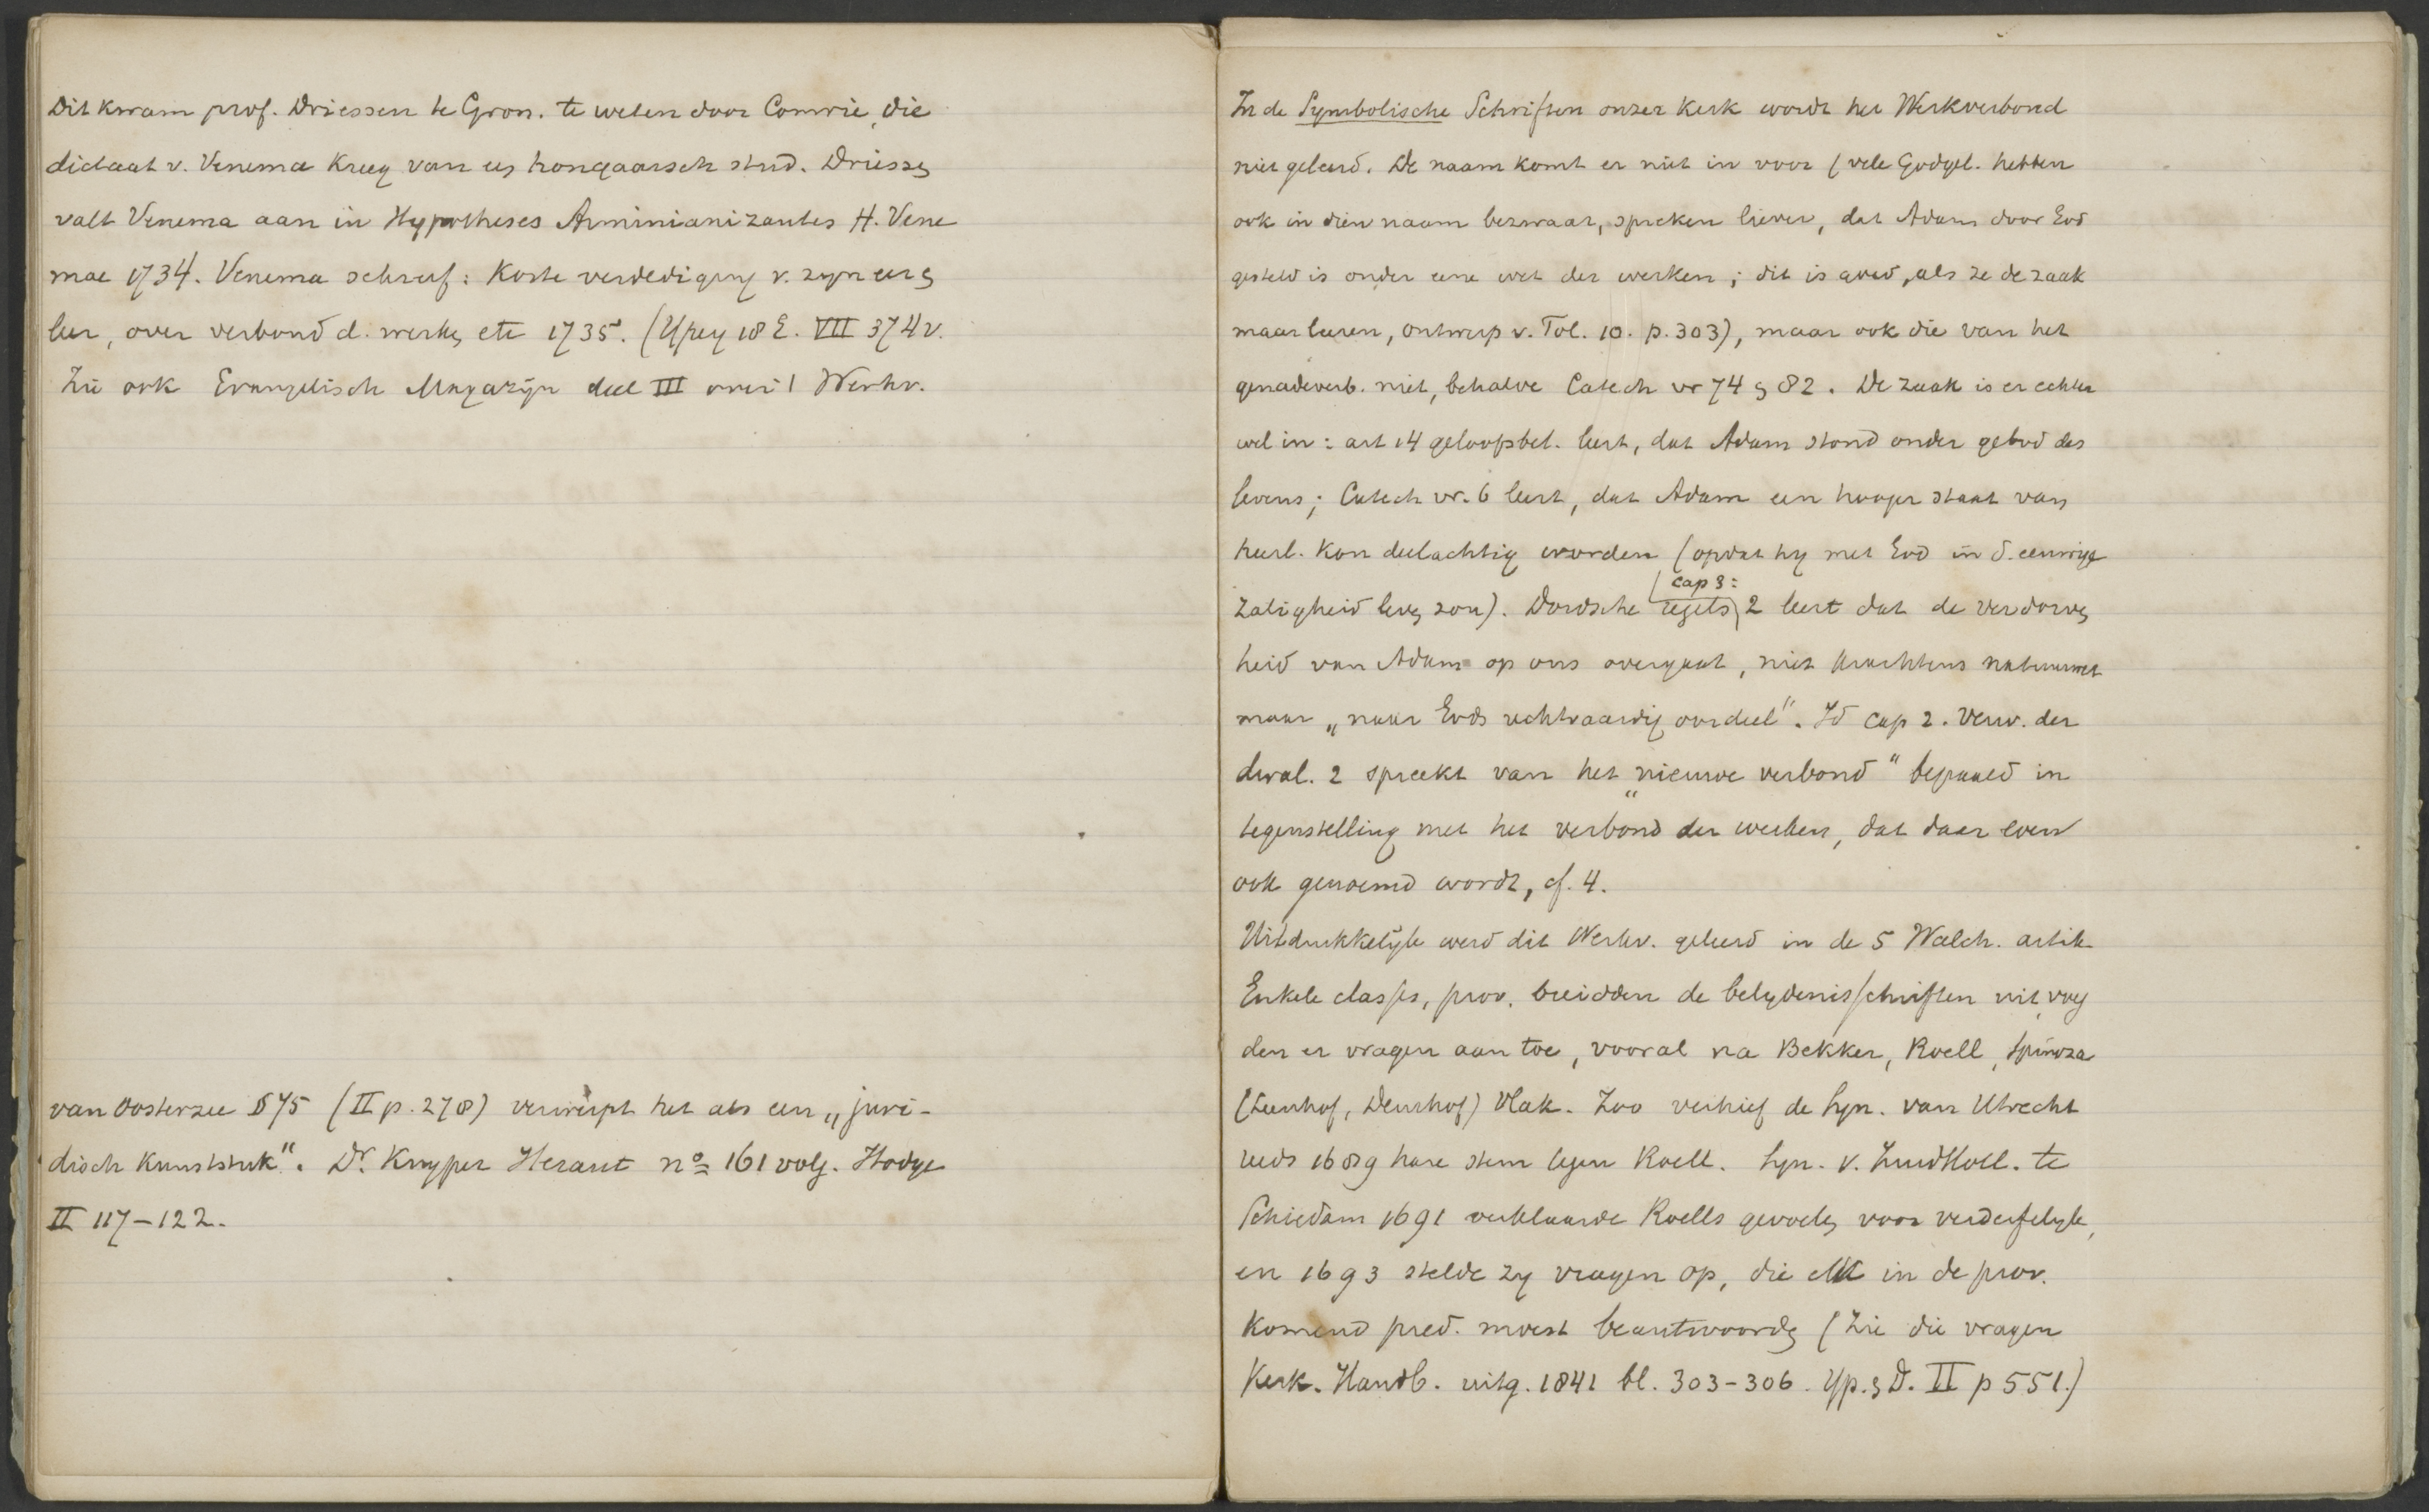 Dit kwam prof. Driessen te Gron. te weten door Comrie, die
dictaat v. Venema kreeg van een hongaarsch stud. Driessen
valt Venema aan in Hypotheses Arminianizantes H. Vene
mae 1734. Venema schreef: Korte verdediging v. zyn eer en
leer, over verbond d. werken etc 1735. (Ypey 18 E. VII 374 v.
Zie ook Evangelisch Magazijn deel III over 't Werkv.
van Oosterzee §75 (II p. 278) verwerpt het als een „juri-
disch kunststuk". Dr. Kuyper Heraut no 161 volg. Hodge
II 117-122.
In de Symbolische Schriften onzer kerk wordt het Werkverbond
niet geleerd. De naam komt er niet in voor (vele Godgel. hebben
ook in dien naam bezwaar, spreken liever, dat Adam door God
gesteld is onder eene wet der werken; dit is goed, als ze de zaak
maar leeren, ontwerp v. Tol. 10. p. 303), maar ook die van het
genadeverb. niet, behalve Catech vr 74 en 82. De zaak is er echter
wel in: art 14 geloofsbel. leert, dat Adam stond onder gebod des
levens; Catech vr. 6 leert, dat Adam een hooger staat van
heerl. kon deelachtig worden (opdat hy met God in d. eeuwige
zaligheid leven zou). Dordsche regels cap 3: 2 leert dat de verdorven
heid van Adam op ons overgaat, niet krachtens natuurwet
maar „naar Gods rechtvaardig oordeel". Id cap 2. Verw. der
dwal. 2 spreekt van het „nieuwe verbond" bepaald in
tegenstelling met het verbond der werken, dat daar even
ook genoemd wordt, cf. 4.
Uitdrukkelijk werd dit Werkv. geleerd in de 5 Walch. artik
Enkele classes, prov. breidden de belydenisschriften uit, voeg
den er vragen aan toe, vooral na Bekker, Roell, Spinoza
(Leenhof, Deurhof) Vlak. Zoo verhief de Syn. van Utrecht
reeds 1689 hare stem tegen Roell. Syn. v. ZuidHoll. te
Schiedam 1691 verklaarde Roells gevoelen voor verderfelyk,
en 1693 stelde zy vragen op, die elk in de prov.
komend pred. moest beantwoorden (Zie die vragen
Kerk. Handb. uitg. 1841 bl. 303-306. Yp. en D. II p 551.)